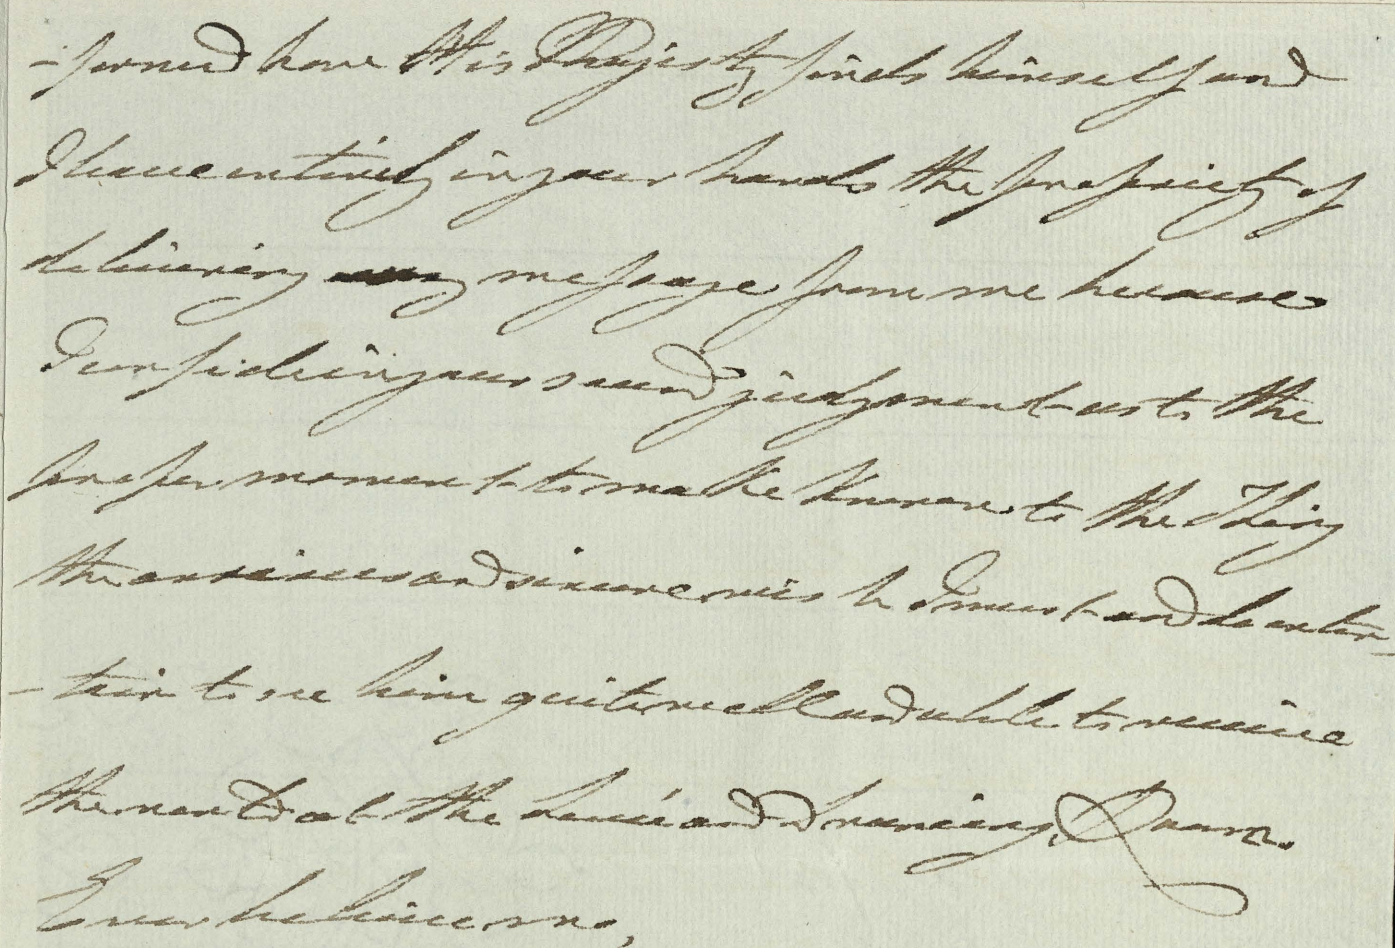 -formed how His Majesty finds himself and
I leave entirely in your hands the propriety of
delivering any message from me because
I confide in your sound judgment as to the
proper moment to make known to the King
the anxious and sincere wish he I must and do enter-
-tain to see him quite well and able to receive
the next at the Levée and drawing Room.
Ever believe me,